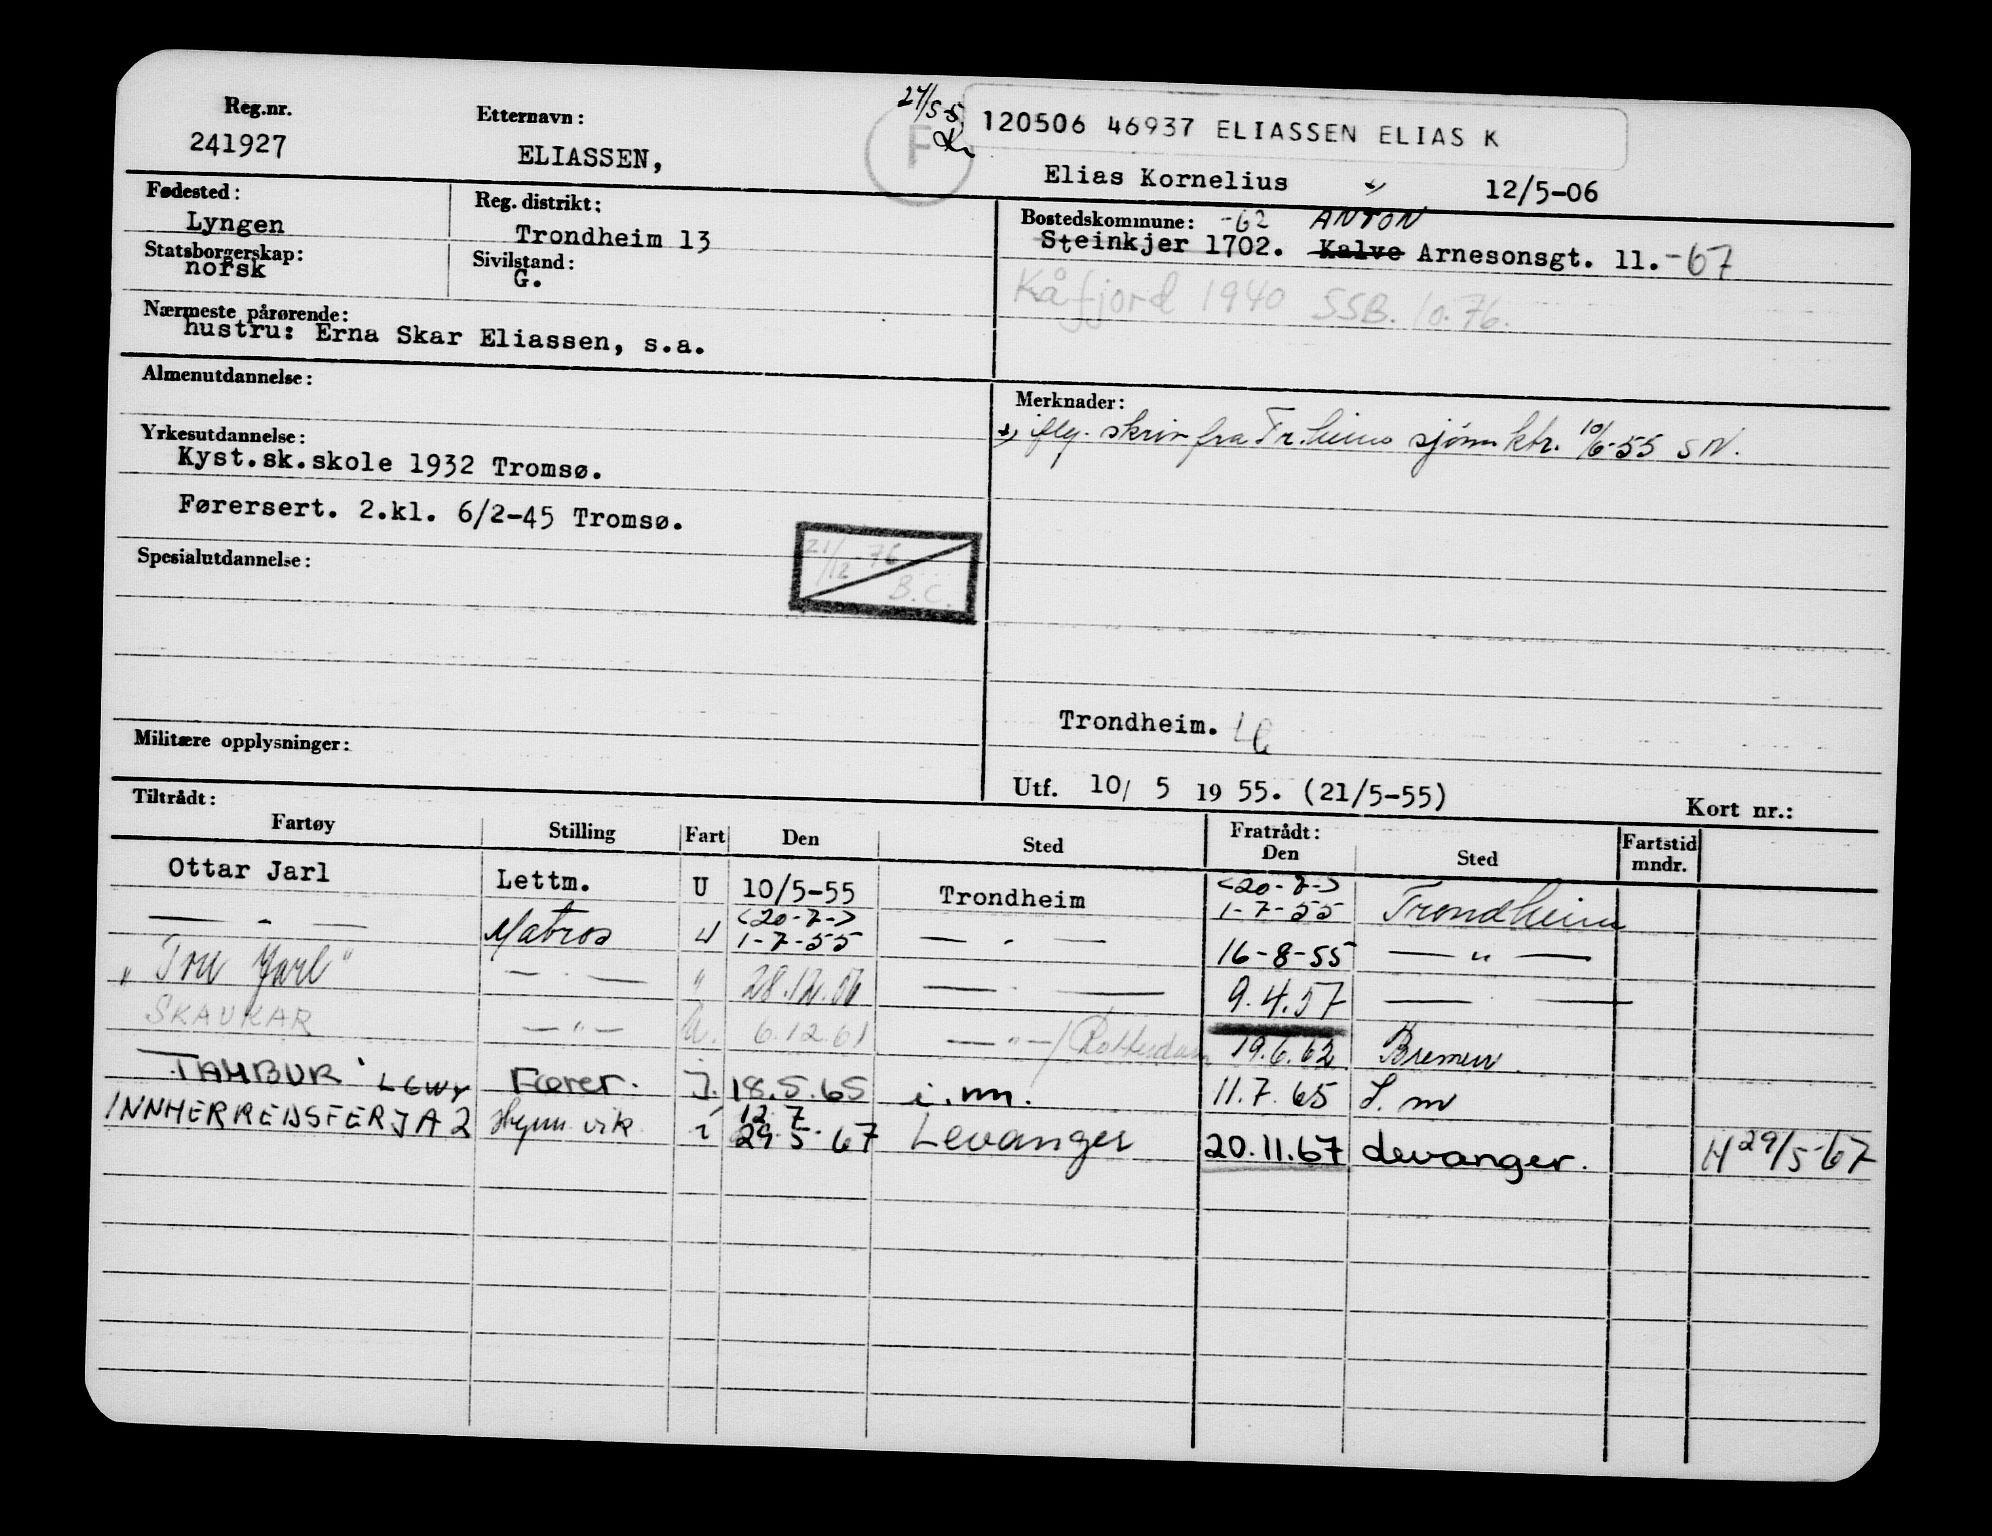 Reg.nr.
241927
Etternavn:
ELIASSEN,
27/5-55
F
120506 46937 ELIASSEN ELIAS K
Elias Kornelius 12/5-06
Fødested:
Lyngen
Reg. distrikt:
Trondheim 13
Statsborgerskap:
norsk
Sivilstand:
G.
Bostedskommune: -62 ANTON
Steinkjer 1702. Kalve Arnesonsgt. 11. -67
Kåfjord 1940 SSB. 10.76.
Nærmeste pårørende:
hustru: Erna Skar Eliassen, s.a.
Almenutdannelse:
Yrkesutdannelse:
Kyst.sk.skole 1932 Tromsø.
Førersert. 2.kl. 6/2-45 Tromsø.
Spesialutdannelse:
21/12 76
B.C.
Militære opplysninger:
Merknader:
iflg. skriv fra Tr.heims sjømktr. 10/6-55 SN.
Trondheim.
Utf. 10/ 5 19 55. (21/5-55)
Kort nr.:
Tiltrådt: Fratrådt:
Fartøy Stilling Fart Den Sted Den Sted Fartstid mndr.
Ottar Jarl Lettm. U 10/5-55 Trondheim <20-7-> 1-7-55 Trondheim
— - — Matros U <20-7-> 1-7-55 — - — 16-8-55 — " —
" Jarl" — - — " 28.12.56 — - — 9.4.57 — —
SKAUKAR — " — U. 6.12.61 — " — / Rotterdam 19.6.62 Bremen
TAMBUR LEWY Fører. J. 18.5.65 i.nn. 11.7.65 S. m
INNHERREDSFERJA 2 i 12 7 29.5.67 Levanger 20.11.67 Levanger. H 29/5-67